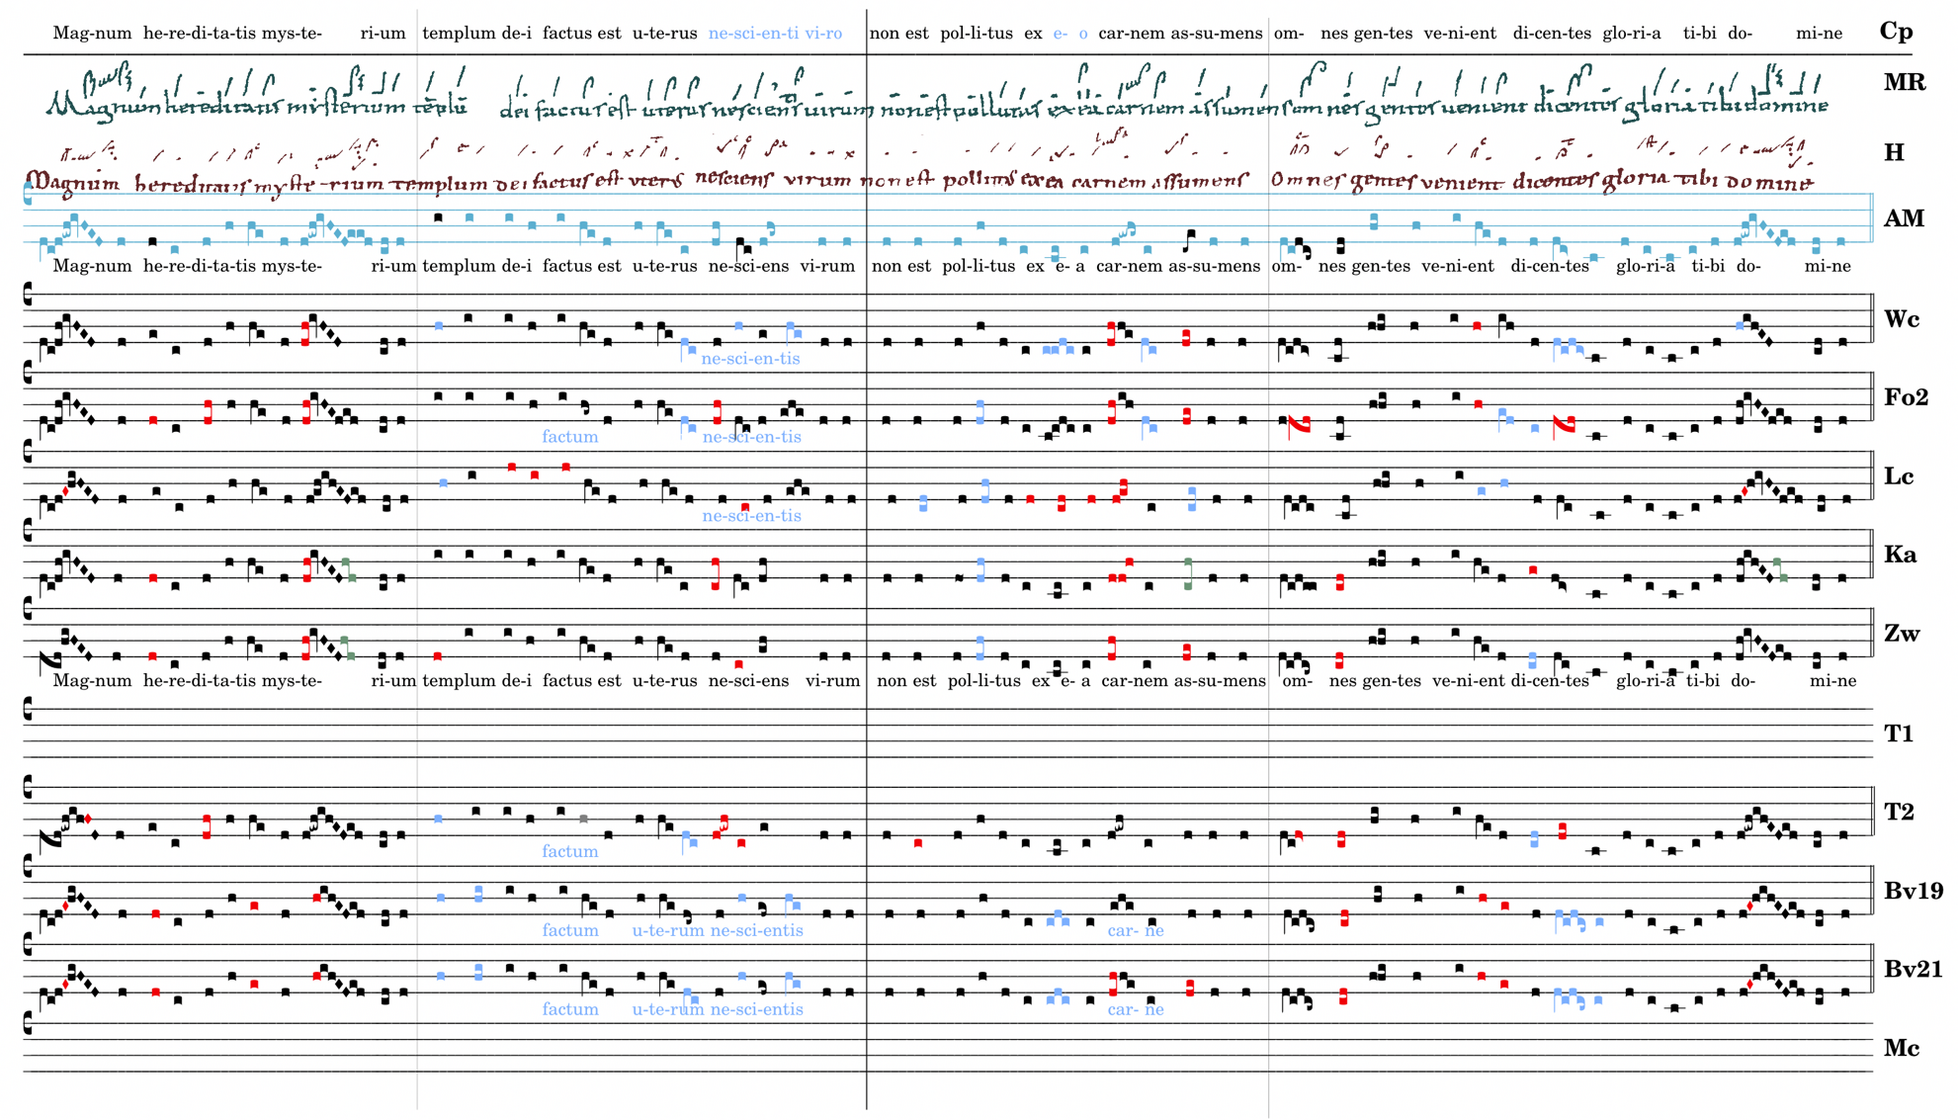 Mag-num he-re-di-ta-tis mys-te- ri-um templum de-i factus est u-te-rus ne-sci-en-ti vi-ro non est pol-li-tus ex e- o car-nem as-su-mens om- nes gen-tes ve-ni-ent di-cen-tes glo-ri-a ti-bi do- mi-ne Cp
Magnum hereditatis misterium templū dei factus est uterus nesciens uirum non est pollutus ex ea carnem assumens omnes gentes uenient dicentes gloria tibi domine MR
H
Magnum hereditatis myste-rium templum dei factus est nesciens virum non est ex ea carnem assumens Omnes gentes venient dicentes gloria tibi domine
AM
Mag-num he-re-di-ta-tis mys-te- ri-um templum de-i factus est u-te-rus ne-sci-ens vi-rum non est pol-li-tus ex e- a car-nem as-su-mens om- nes gen-tes ve-ni-ent di-cen-tes glo-ri-a ti-bi do- mi-ne
Wc
ne-sci-en-tis
Fo2
factum ne-sci-en-tis
Lc
ne-sci-en-tis
Ka
Zw
Mag-num he-re-di-ta-tis mys-te- ri-um templum de-i factus est u-te-rus ne-sci-ens vi-rum non est pol-li-tus ex e- a car-nem as-su-mens om- nes gen-tes ve-ni-ent di-cen-tes glo-ri-a ti-bi do- mi-ne
T1
T2
factum
Bv19
factum u-te-rum ne-sci-entis car- ne
Bv21
factum u-te-rum ne-sci-entis car- ne
Mc